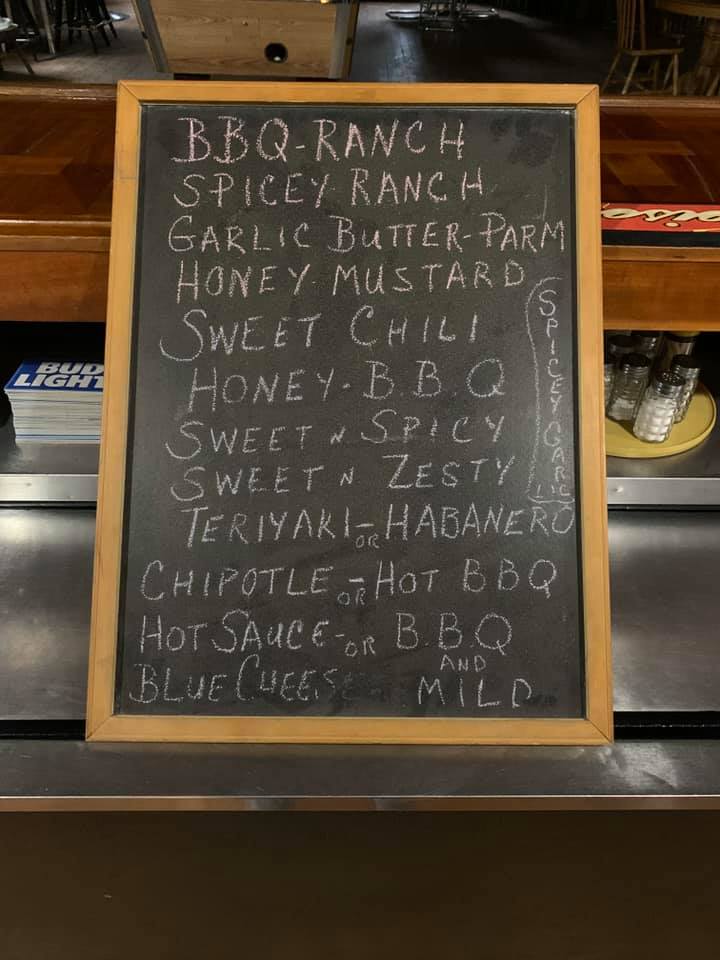 BBQ-RANCH
SPICEY RANCH
GARLIC BUTTER-PARM
HONEY MUSTARD
SWEET CHILI
HONEY-B.B.Q
SWEET N SPICY
SWEET N ZESTY
SPICEY GARLIC
TERIYAKI-OR HABANERO
CHIPOTLE-OR HOT BBQ
HOT SAUCE-OR B.B.Q
BLUE CHEESE AND MILD
BUD
LIGHT